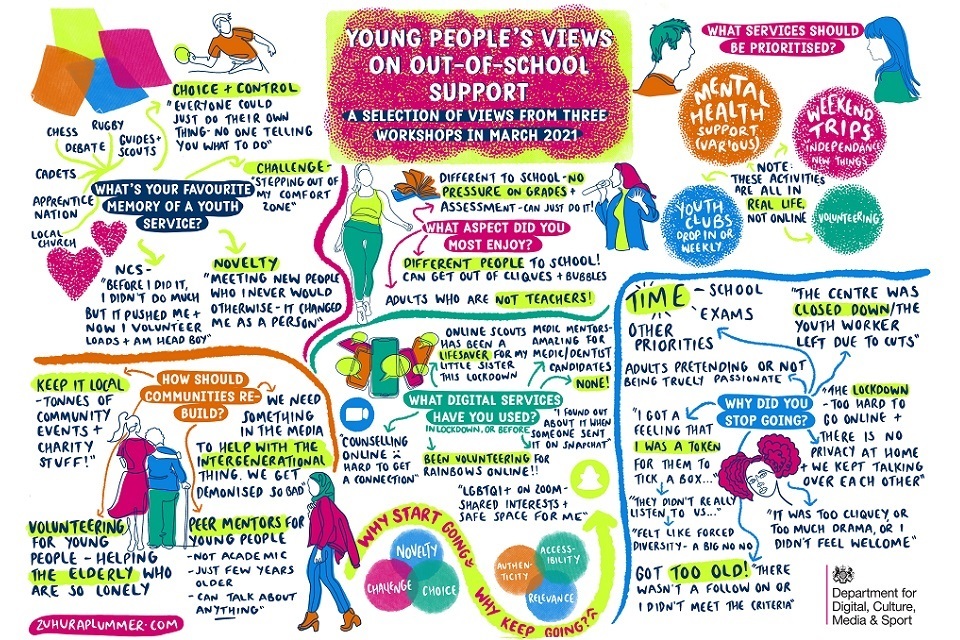 YOUNG PEOPLE'S VIEWS
ON OUT-OF-SCHOOL
SUPPORT
A SELECTION OF VIEWS FROM THREE
WORKSHOPS IN MARCH 2021
CHOICE + CONTROL
"EVERYONE COULD
JUST DO THEIR OWN
THING - NO ONE TELLING
YOU WHAT TO DO"
CHESS
RUGBY
DEBATE
GUIDES+
SCOUTS
CADETS
APPRENTICE
NATION
LOCAL
CHURCH
WHAT'S YOUR FAVOURITE
MEMORY OF A YOUTH
SERVICE?
CHALLENGE-
"STEPPING OUT OF
MY COMFORT
ZONE"
NCS-
"BEFORE I DID IT,
I DIDN'T DO MUCH
BUT IT PUSHED ME +
NOW I VOLUNTEER
LOADS + AM HEAD BOY"
NOVELTY
"MEETING NEW PEOPLE
WHO I NEVER WOULD
OTHERWISE - IT CHANGED
ME AS A PERSON"
DIFFERENT TO SCHOOL - NO
PRESSURE ON GRADES +
ASSESSMENT - CAN JUST DO IT!
WHAT ASPECT DID YOU
MOST ENJOY?
DIFFERENT PEOPLE TO SCHOOL!
CAN GET OUT OF CLIQUES + BUBBLES
ADULTS WHO ARE NOT TEACHERS!
WHAT SERVICES SHOULD
BE PRIORITISED?
MENTAL
HEALTH
SUPPORT
(VARIOUS)
WEEKEND
TRIPS:
INDEPENDANCE
NEW THINGS
NOTE:
THESE ACTIVITIES
ARE ALL IN
REAL LIFE,
NOT ONLINE
YOUTH
CLUBS
DROP IN OR
WEEKLY
VOLUNTEERING
KEEP IT LOCAL -
-TONNES OF
COMMUNITY
EVENTS +
CHARITY
STUFF!"
HOW SHOULD
COMMUNITIES RE-
BUILD?
"WE NEED
SOMETHING
IN THE MEDIA
TO HELP WITH THE
INTERGENERATIONAL
THING. WE GET
DEMONISED SO BAD"
VOLUNTEERING
FOR YOUNG
PEOPLE - HELPING
THE ELDERLY WHO
ARE SO LONELY
PEER MENTORS FOR
YOUNG PEOPLE
-NOT ACADEMIC
-JUST FEW YEARS
OLDER
-CAN TALK ABOUT
ANYTHING"
ZUHURAPLUMMER.COM
ONLINE SCOUTS
HAS BEEN A
LIFESAVER FOR MY
LITTLE SISTER
THIS LOCKDOWN
MEDIC MENTORS-
AMAZING FOR
MEDIC/DENTIST
CANDIDATES
NONE!
WHAT DIGITAL SERVICES
HAVE YOU USED?
IN LOCKDOWN, OR BEFORE
"COUNSELLING
ONLINE :(
HARD TO GET
A CONNECTION"
"I FOUND OUT
ABOUT IT WHEN
SOMEONE SENT
IT ON SNAPCHAT"
BEEN VOLUNTEERING FOR
RAINBOWS ONLINE!!
"LGBTQI+ ON ZOOM-
SHARED INTERESTS +
SAFE SPACE FOR ME"
WHY START GOING?
NOVELTY
CHALLENGE
CHOICE
WHY KEEP GOING?
AUTHEN-
TICITY
ACCESS-
IBILITY
RELEVANCE
TIME - SCHOOL
EXAMS
OTHER
PRIORITIES
"THE CENTRE WAS
CLOSED DOWN/THE
YOUTH WORKER
LEFT DUE TO CUTS"
ADULTS PRETENDING OR NOT
BEING TRUELY PASSIONATE
WHY DID YOU
STOP GOING?
"I GOT A
FEELING THAT
I WAS A TOKEN
FOR THEM TO
TICK A BOX..."
"THEY DIDN'T REALLY
LISTEN TO US..."
"FELT LIKE FORCED
DIVERSITY - A BIG NO NO
"THE LOCKDOWN
-TOO HARD TO
GO ONLINE +
THERE IS NO
PRIVACY AT HOME
+ WE KEPT TALKING
OVER EACH OTHER"
"IT WAS TOO CLIQUEY, OR
TOO MUCH DRAMA, OR I
DIDN'T FEEL WELCOME"
GOT TOO OLD! "THERE
WASN'T A FOLLOW ON OR
I DIDN'T MEET THE CRITERIA"
Department for
Digital, Culture,
Media & Sport